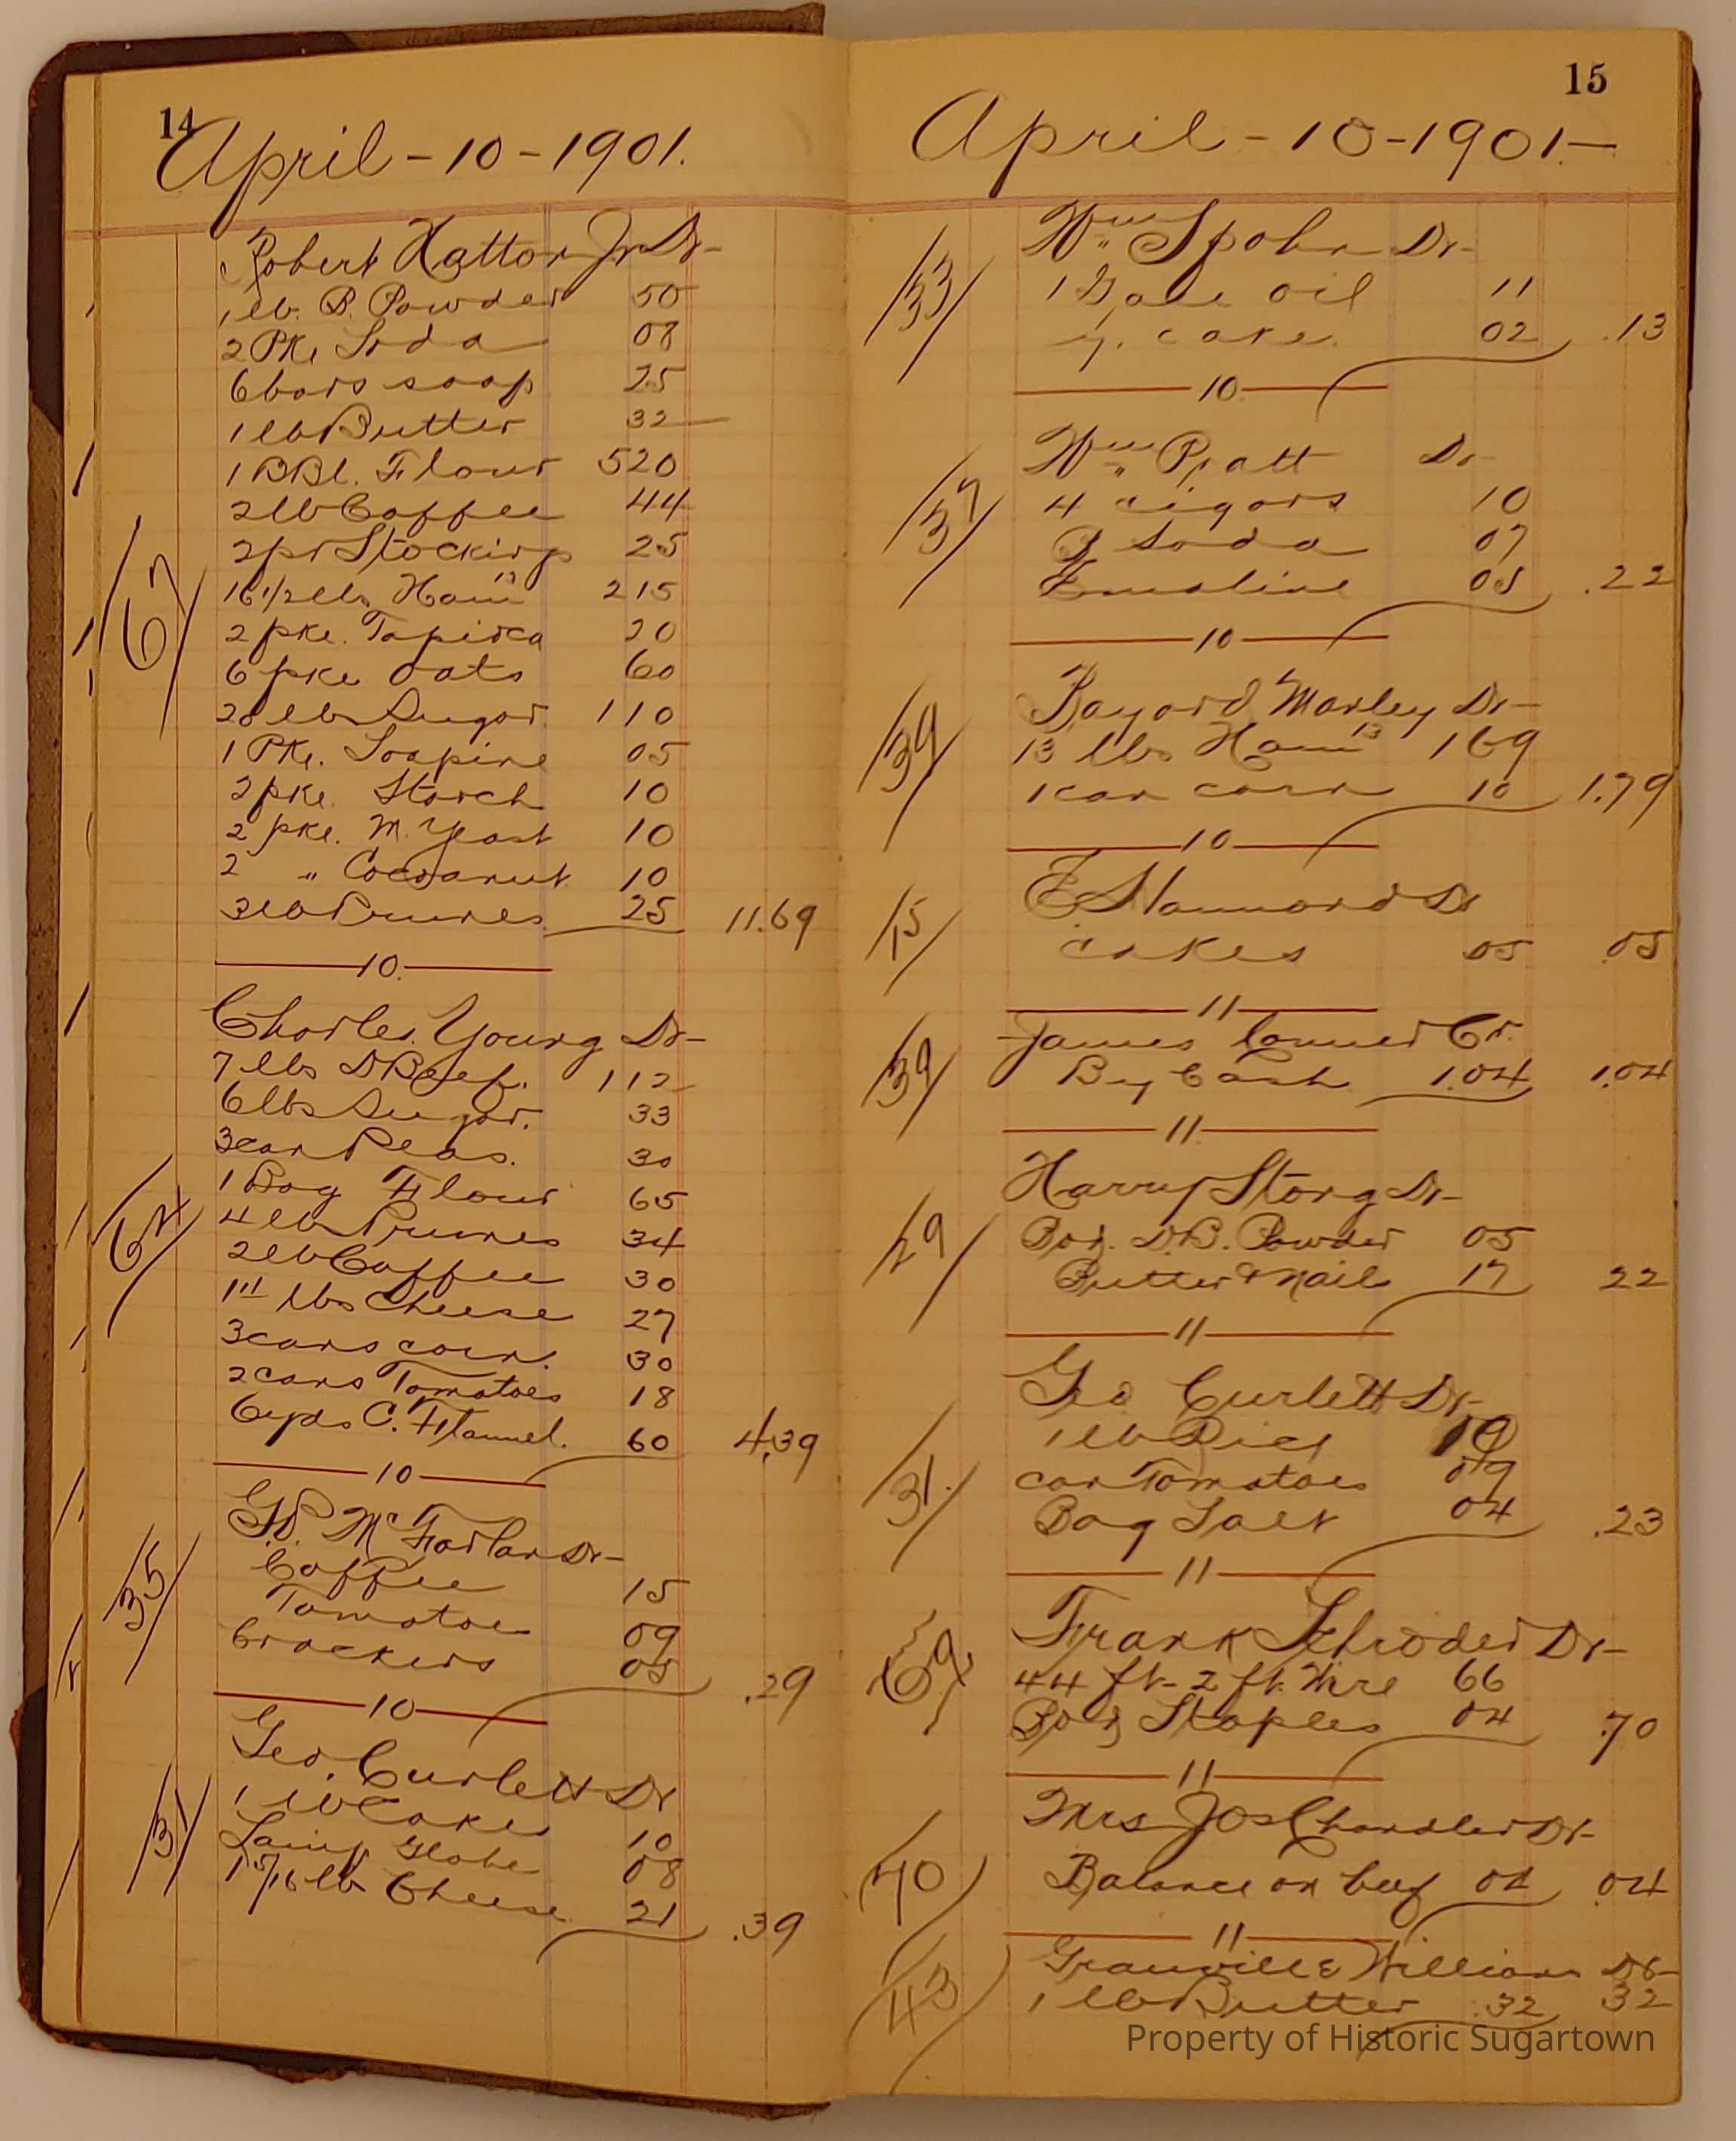 14
April - 10 - 1901.
Robert Hatton Jr Dr-
1 lb. B. Powder 50
2 Pke Soda 08
6 bars soap 25
1 lb Butter 32
1 BBl. Flour 520
2 lb Coffee 44
2 pr Stockings 25
16 1/2 lbs Ham 13 215
2 pke. Tapioca 20
6 pke oats 60
20 lb Sugar. 110
1 Pke. Soapine 05
2 pke. Starch 10
2 pke. M. Yeast 10
2 " Cocoanut 10
3 lb Prunes 25 11.69
67
10.
Charles Young Dr-
7 lbs D Beef. 112
6 lbs Sugar. 33
3 can Peas. 30
1 Bag Flour 65
4 lb Prunes 34
2 lb Coffee 30
lbs Cheese 27
3 cans corn. 30
2 cans Tomatoes 18
6 yds C. Flannel. 60 4.39
62
10
G.P. McFarlan Dr-
Coffee 15
Tomatoe 09
Crackers 05 .29
35
10
Geo. Curlett Dr
1 lb Cake 10
Lamp Globe 08
1 5/16 lb Cheese 21 .39
31
15
April - 10 - 1901-
53
Wm Spohn Dr-
1 Gall oil 11
y. cake. 02 .13
10
37
Wm Pratt Dr-
4 cigars 10
B Soda 07
05 .22
10
39
Bayard Marley Dr-
13 lbs Ham 13 169
1 can corn 10 1.79
10
15
E Hammond Dr
cakes 05 .05
11
39
James Conner Cr.
By Cash 1.04 1.04
11
29
Harry Storg Dr-
Box. D.B. Powder 05
Butter & Nails 17 22
11
31.
Geo Curlett Dr-
1 lb Rice 10
can Tomatoes 09
Bag Salt 04 .23
11
69
Frank Schroder Dr-
44 ft - 2 ft. Wire 66
Box Staples 04 .70
11
40
Mrs Jos Chandler Dr-
Balance on beef 04 .04
11
43
Granville Williams Dr-
1 lb Butter .32 32
Property of Historic Sugartown